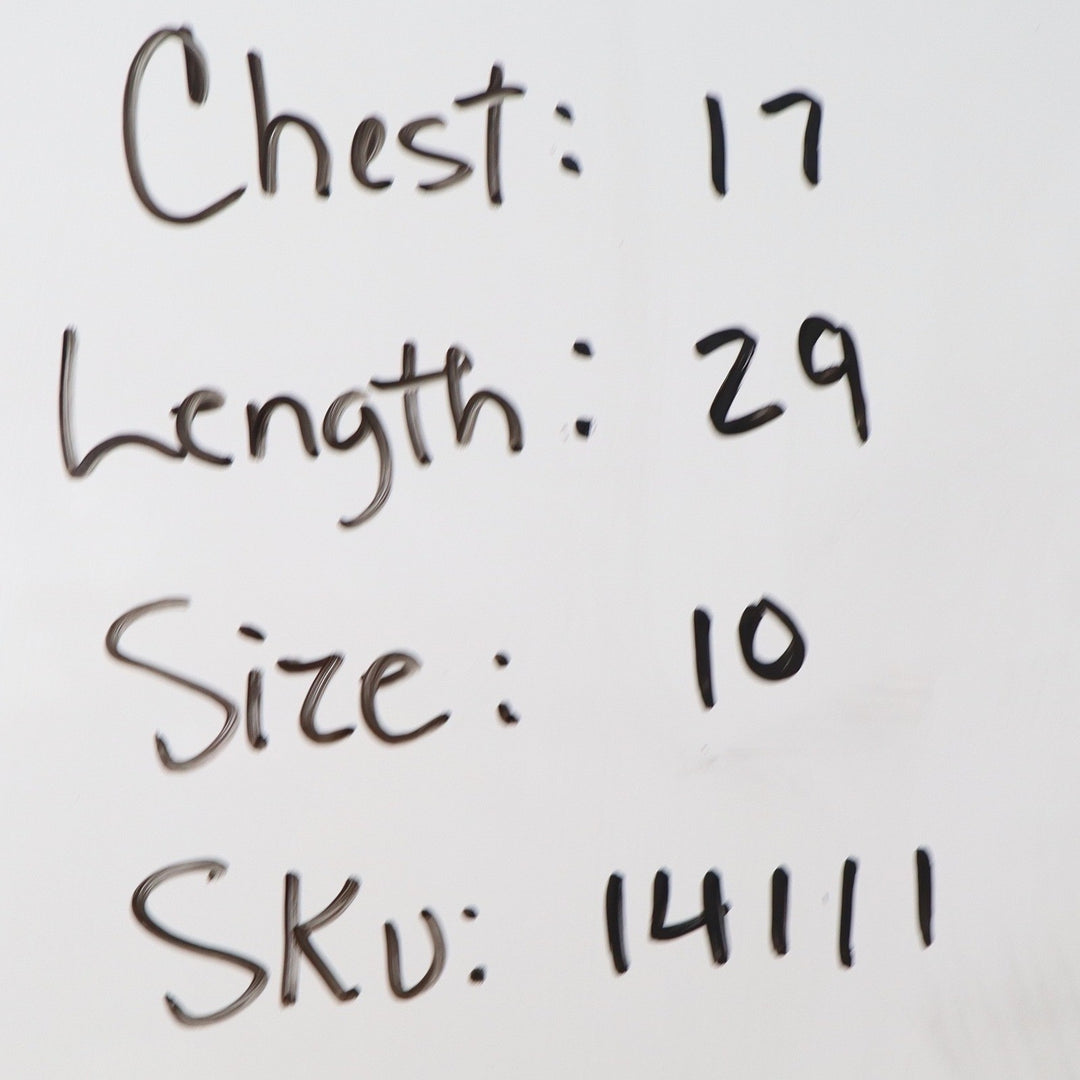 Chest: 17
Length: 29
Size: 10
SKU: 14111